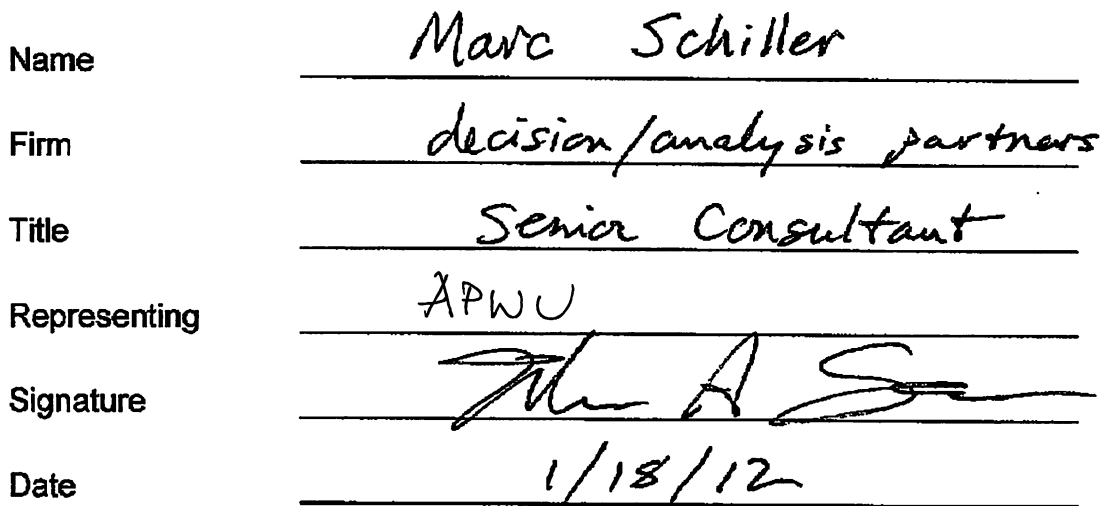 Name Marc Schiller
Firm decision/analysis partners
Title Senior Consultant
Representing APWU
Signature
Date 1/18/12